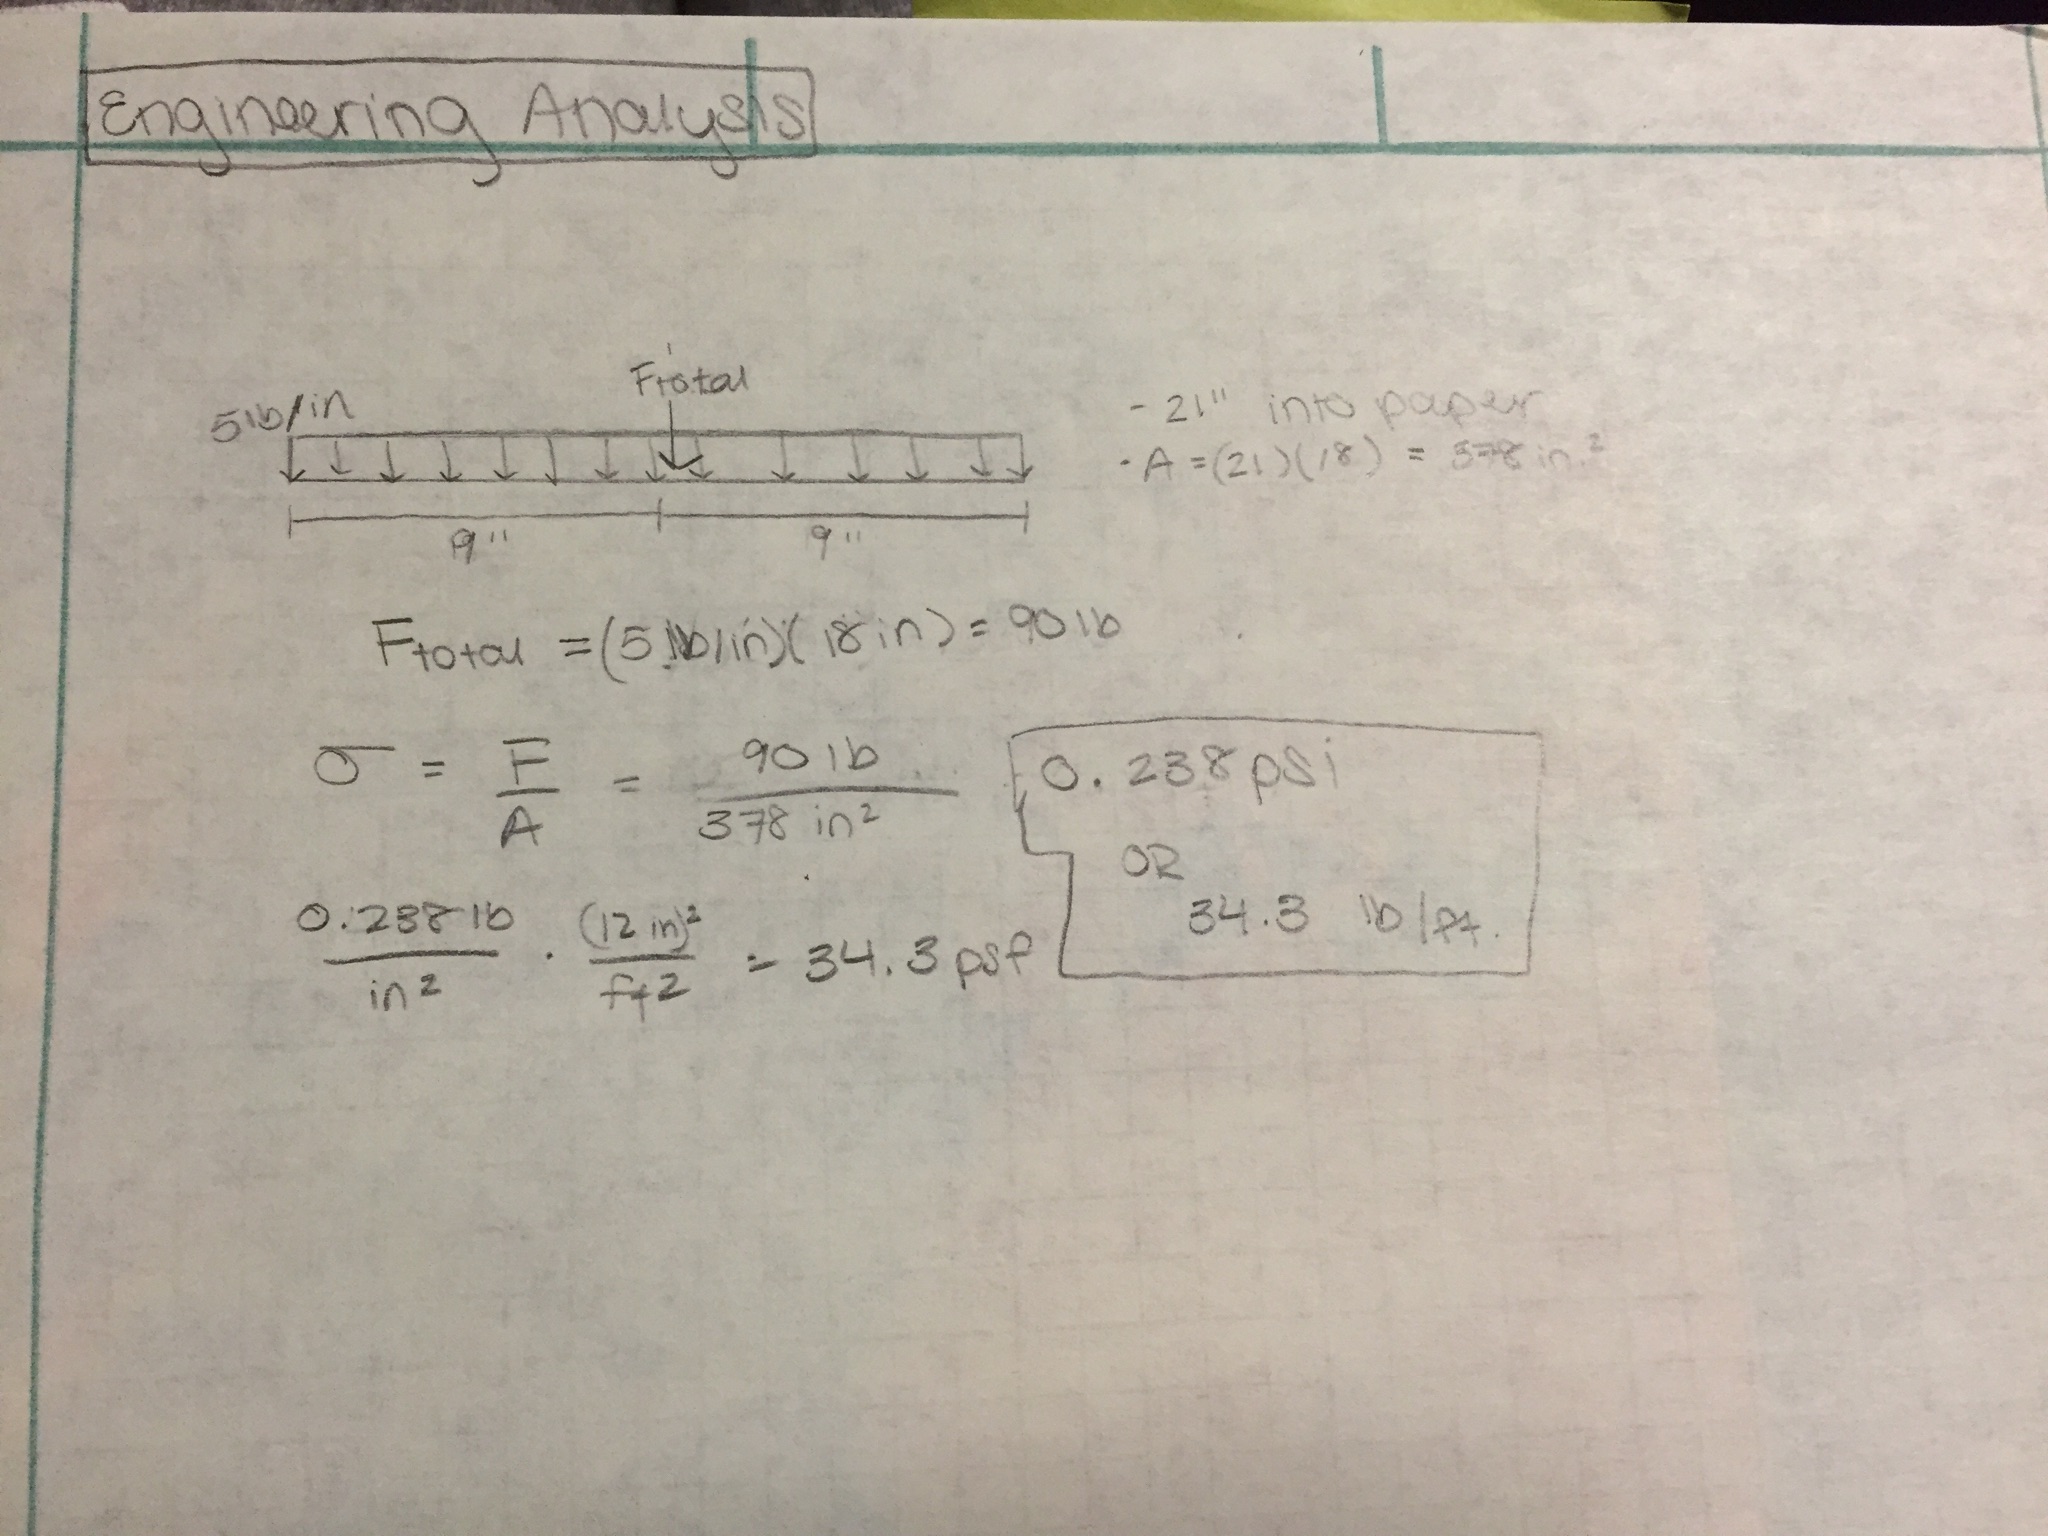 Engineering Analysis
Ftotal
5 lb/in
- 21" into paper
- A = (21)(18) = 378 in.²
9" 9"
Ftotal = (5 lb/in)(18 in) = 90 lb
σ = F/A = 90 lb/378 in²
0.238 psi
OR
34.3 lb/ft.
0.238 lb/in² · (12 in)²/ft² = 34.3 psf